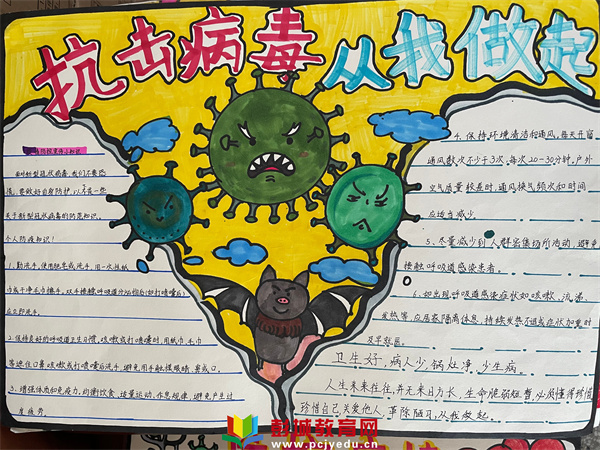 抗击病毒 从我做起
面对新型冠状病毒,我们不要恐
慌,要做好自身防护,以下是一些
关于新型冠状病毒的防范知识。
个人防疫知识!
1.勤洗手,使用肥皂或洗手,用一次性纸
巾或干净毛巾擦手,双手接触呼吸道分泌物后(如打喷嚏后)
应立即洗手。
2.保持良好的呼吸道卫生习惯,咳嗽或打喷嚏时,用纸巾、毛巾
等遮住口鼻咳嗽或打喷嚏后洗手,避免用手触摸眼睛、鼻或口。
3.增强体质和免疫力,均衡饮食、适量运动、作息规律,避免产生过
度疲劳。
4.保持环境清洁和通风,每天开窗
通风数次不少于3次,每次20-30分钟,户外
空气质量较差时,通风换气频次和时间
应适当减少。
5.尽量减少到人群密集场所活动,避免
接触呼吸道感染患者。
6.如出现呼吸道感染症状如咳嗽、流涕、
发热等,应居家隔离休息,持续发热不退或症状加重时
及早就医。
卫生好,病人少,锅灶净,少生病。
人生来来往往,并无来日方长,生命脆弱短暂,必须懂得珍惜
珍惜自己,关爱他人,革除陋习,从我做起。
彭城教育网
www.pcjyedu.cn